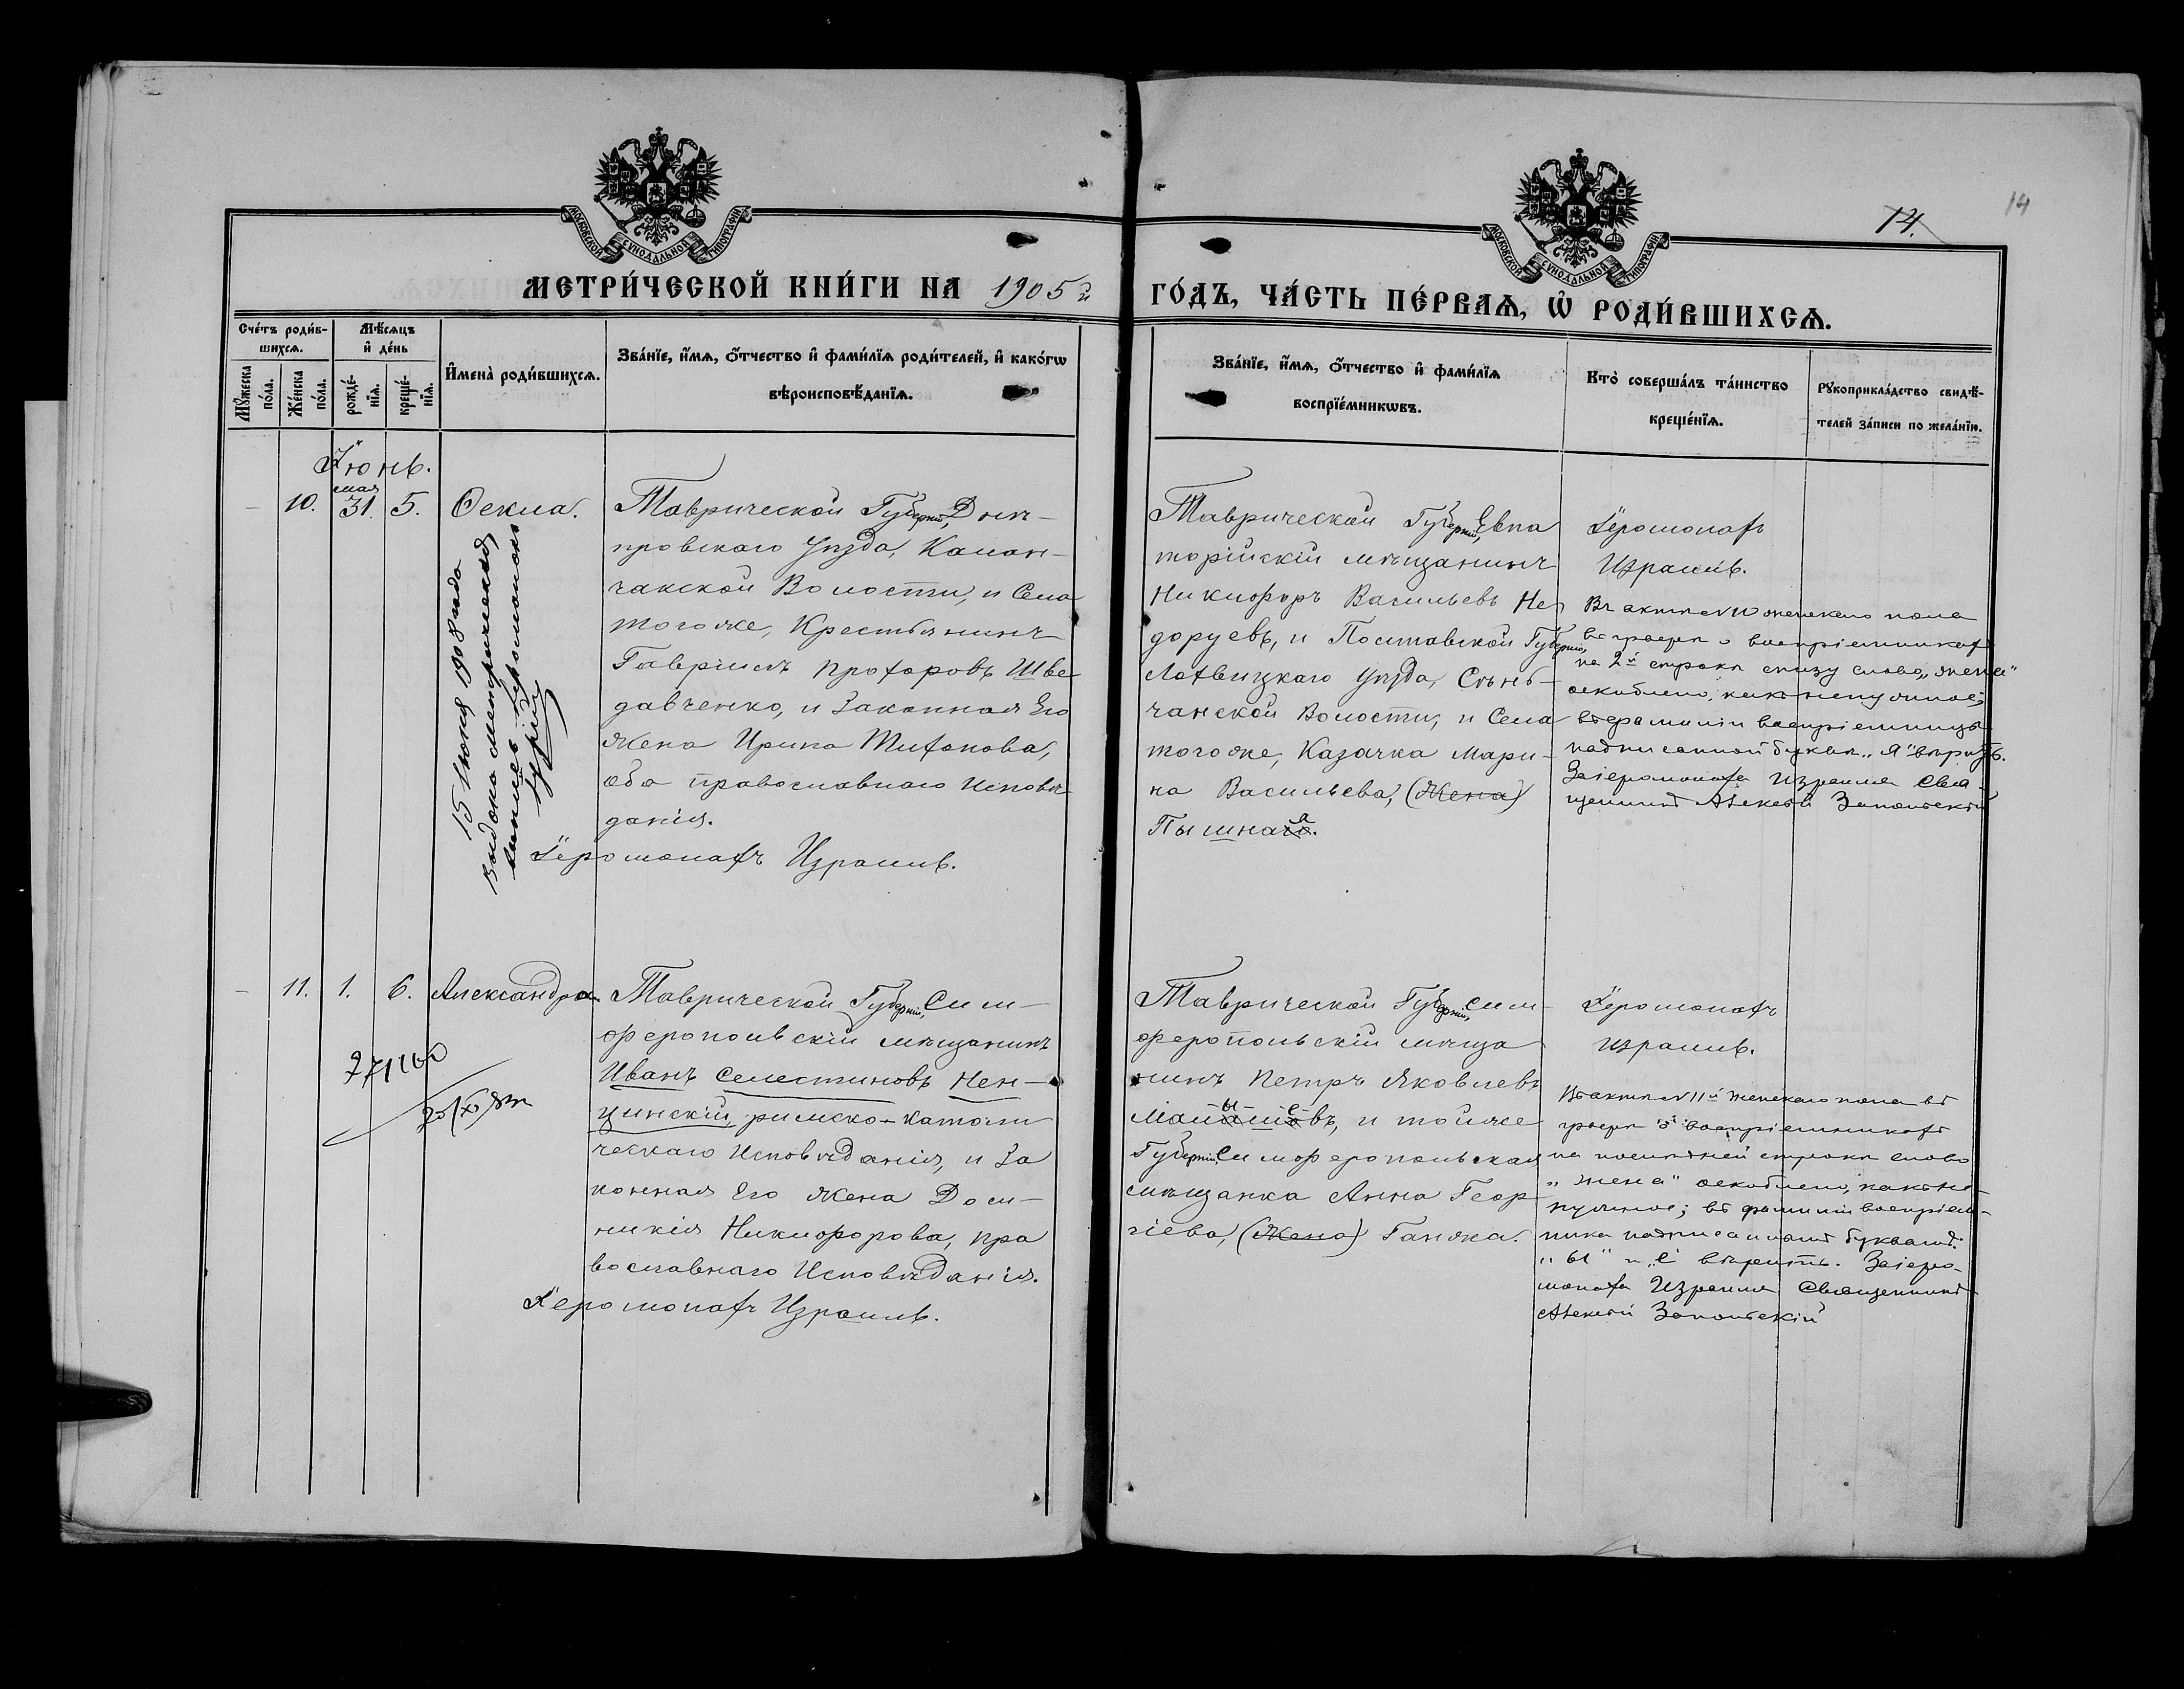 14
14.
МОСКОВСКОЙ СѴНОДАЛЬНОЙ ТИПОГРАФІИ
МОСКОВСКОЙ СѴНОДАЛЬНОЙ ТИПОГРАФІИ
МЕТРИ́ЧЕСКОЙ КНИ́ГИ НА 1905й ГО́ДЪ, ЧА́СТЬ ПЕ́РВАѦ, Ѡ҆ РОДИ́ВШИХСѦ.
Сче́тъ роди́в-
шихсѧ.
Мꙋ́жеска по́ла.
Же́нска по́ла.
Мѣ́сѧцъ
и҆ де́нь
рожде́-
нїѧ.
креще́-
нїѧ.
И҆мена̀ роди́вшихсѧ.
Зва́нїе, и҆́мѧ, ѻ҆́тчество и҆ фами́лїѧ роди́телей, и҆ како́гѡ
вѣроисповѣ́данїѧ.
Зва́нїе, и҆́мѧ, ѻ҆́тчество и҆ фами́лїѧ
воспрїе́мникѡвъ.
Кто̀ соверша́лъ та́инство
креще́нїѧ.
Рꙋкоприкла́дство свидѣ́-
телей за́писи по жела́нїю.
Іюнь.
мая
— 10. 31. 5. Ѳекла.
Таврической Губерніи, Днѣ-
провскаго Уѣзда, Калан-
чакской Волости, и Села
тогоже, Крестьянинъ
Гавріилъ Прохоровъ Шве-
давченко, и Законная Его
Жена Ирина Тихонова,
оба православнаго Исповѣ-
данія.
Іеромонахъ Израиль.
15 Июня 1908 года
Выдана метрическая
выпись Іеромонахъ
Таврической Губерніи, Евпа
торійскій мѣщанинъ
Никифоръ Васильевъ Не-
доруевъ, и Полтавской Губерніи,
Лохвицкаго Уѣзда, Сѣнь-
чанской Волости, и Села
тогоже, Казачка Мари-
на Васильева, (Жена)
Пышная.
Іеромонахъ
Израиль.
Въ актѣ №10 женскаго пола
въ графѣ о воспріемникахъ
на 2й строкѣ снизу слово „жена“
оскоблено, какъ ненужное;
въ фамиліи воспріемницы
надписанной буквѣ „я“ вѣрить.
За іеромонаха Израиля Свя-
щенникъ Алексій Запольскій
— 11. 1. 6. Александра.
Таврической Губерніи, Сим-
феропольскій мѣщанинъ
Иванъ Селестиновъ Нен-
цинскій, римско-католи
ческаго Исповѣданія, и За
конная Его Жена Доми-
никія Никифорова, пра
вославнаго Исповѣданія.
Іеромонахъ Израиль.
Таврической Губерніи, Сим-
феропольскій мѣща
нинъ Петръ Яковлевъ
Малышевъ, и тойже
Губерніи, Симферопольская
мѣщанка Анна Геор-
гіева, (Жена) Ганжа.
Іеромонахъ
Израиль.
Въ актѣ №11й женскаго пола въ
графѣ о воспріемникахъ
на послѣдней строкѣ слово
„жена“ оскоблено, какъ не-
нужное; въ фамиліи воспріем-
ника надписаннымъ буквамъ
„ы“ и „е“ вѣрить. За іеро-
монаха Израиля Священникъ
Алексій Запольскій